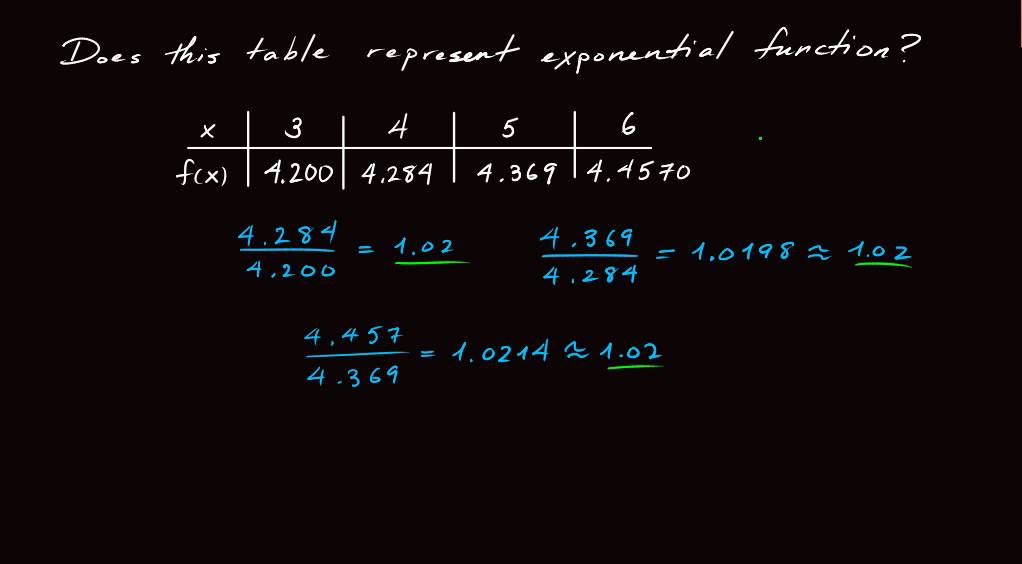 Does this table represent exponential function?
x 3 4 5 6
f(x) 4.200 4.284 4.369 4.4570
4.284/4.200 = 1.02 4.369/4.284 = 1.0198 ≈ 1.02
4.457/4.369 = 1.0214 ≈ 1.02